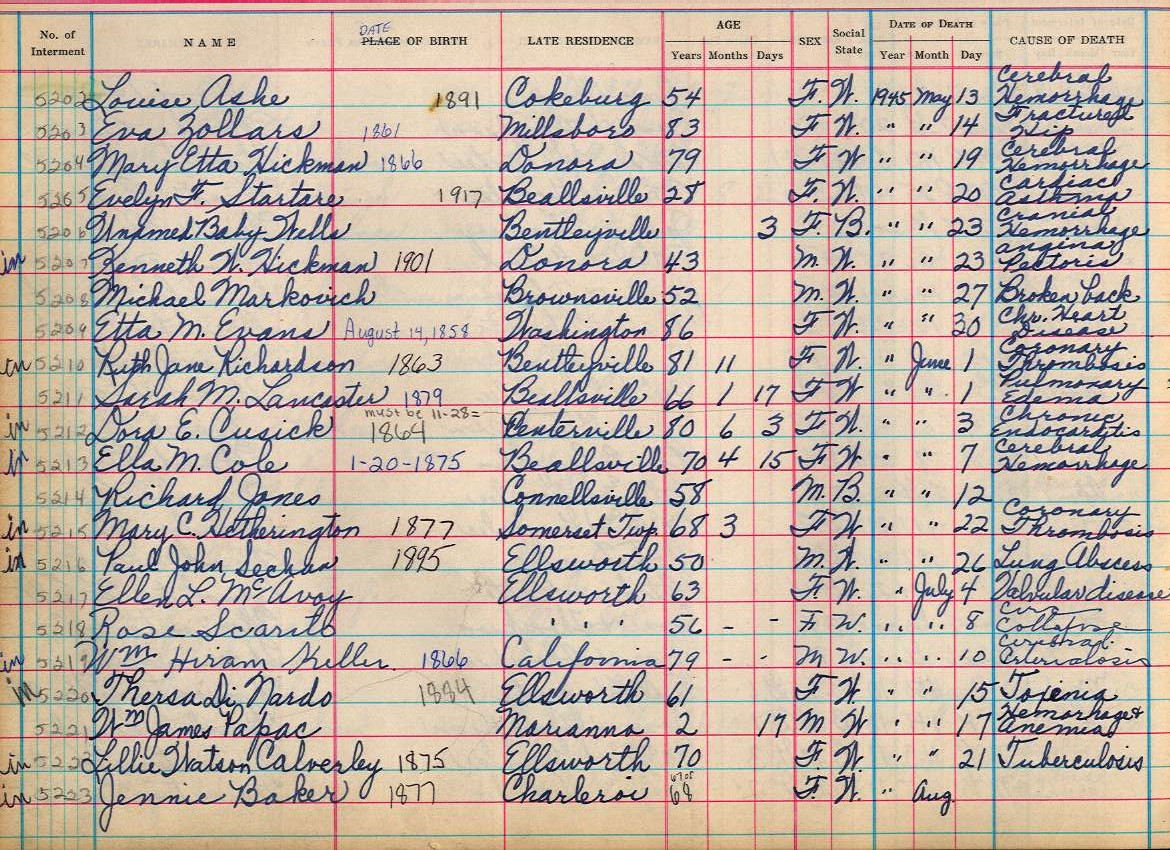 No. of Interment NAME DATE PLACE OF BIRTH LATE RESIDENCE AGE Years Months Days SEX Social State DATE OF DEATH Year Month Day CAUSE OF DEATH
5202 Louise Ashe 1891 Cokeburg 54 F. W. 1945 May 13 Cerebral Hemorrhage
5203 Eva Zollars 1861 Millsboro 83 F W. " " 14 Fractured Hip
5204 Mary Etta Hickman 1866 Donora 79 F W " " 19 Cerebral Hemorrhage
5205 Evelyn F. Startare 1917 Beallsville 28 F. W. " " 20 Cardiac Asthma
5206 Unamed Baby Wells Bentleyville 3 F. B. " " 23 Cranial Hemorrhage
in 5207 Kenneth W. Hickman 1901 Donora 43 M. W. " " 23 anginar Pectoris
5208 Michael Markovich Brownsville 52 M. W. " " 27 Broken back
5209 Etta M. Evans August 14, 1858 Washington 86 F W. " " 30 Chr. Heart Disease
in 5210 Ruth Jane Richardson 1863 Bentleyville 81 11 F W. " June 1 Coronary Thrombosis
5211 Sarah M. Lancaster 1879 Beallsville 66 1 17 F W " " 1 Pulmonary Edema
must be 11-28=
in 5212 Dora E. Cusick 1864 Centerville 80 6 3 F W. " " 3 Chronic Endocarditis
in 5213 Ella M. Cole 1-20-1875 Beallsville 70 4 15 F W. " " 7 Cerebral Hemorrhage
5214 Richard Jones Connellsville 58 M. B. " " 12
in 5215 Mary C. Hetherington 1877 Somerset Twp. 68 3 F W. " " 22 Coronary Thrombosis
in 5216 Paul John Sechan 1895 Ellsworth 50 M. W. " " 26 Lung Abscess
5217 Ellen L. McAvoy Ellsworth 63 F. W. " July 4 Valvular disease
5218 Rose Scarito " " " 56 - - F W. " " 8 Collapse
in 5219 Wm Hiram Keller. 1866 California 79 - - M W. " " 10
in 5220 Thersa Di Nardo 1884 Ellsworth 61 F W. " " 15
5221 Wm James Papac Marianna 2 17 M W " " 17 Hemorhage & anemia
in 5222 Lillie Watson Calverley 1875 Ellsworth 70 F. W. " " 21 Tuberculosis
in 5223 Jennie Baker 1877 Charleroi 67 or 68 F. W. " Aug.